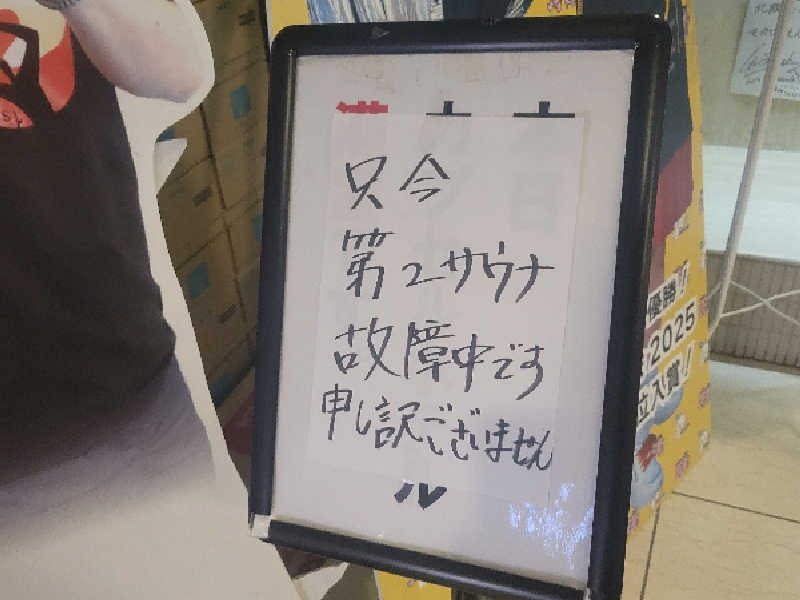 只今
第2サウナ
故障中です
申し訳ございません
ル
優勝!!
2025
位入賞!